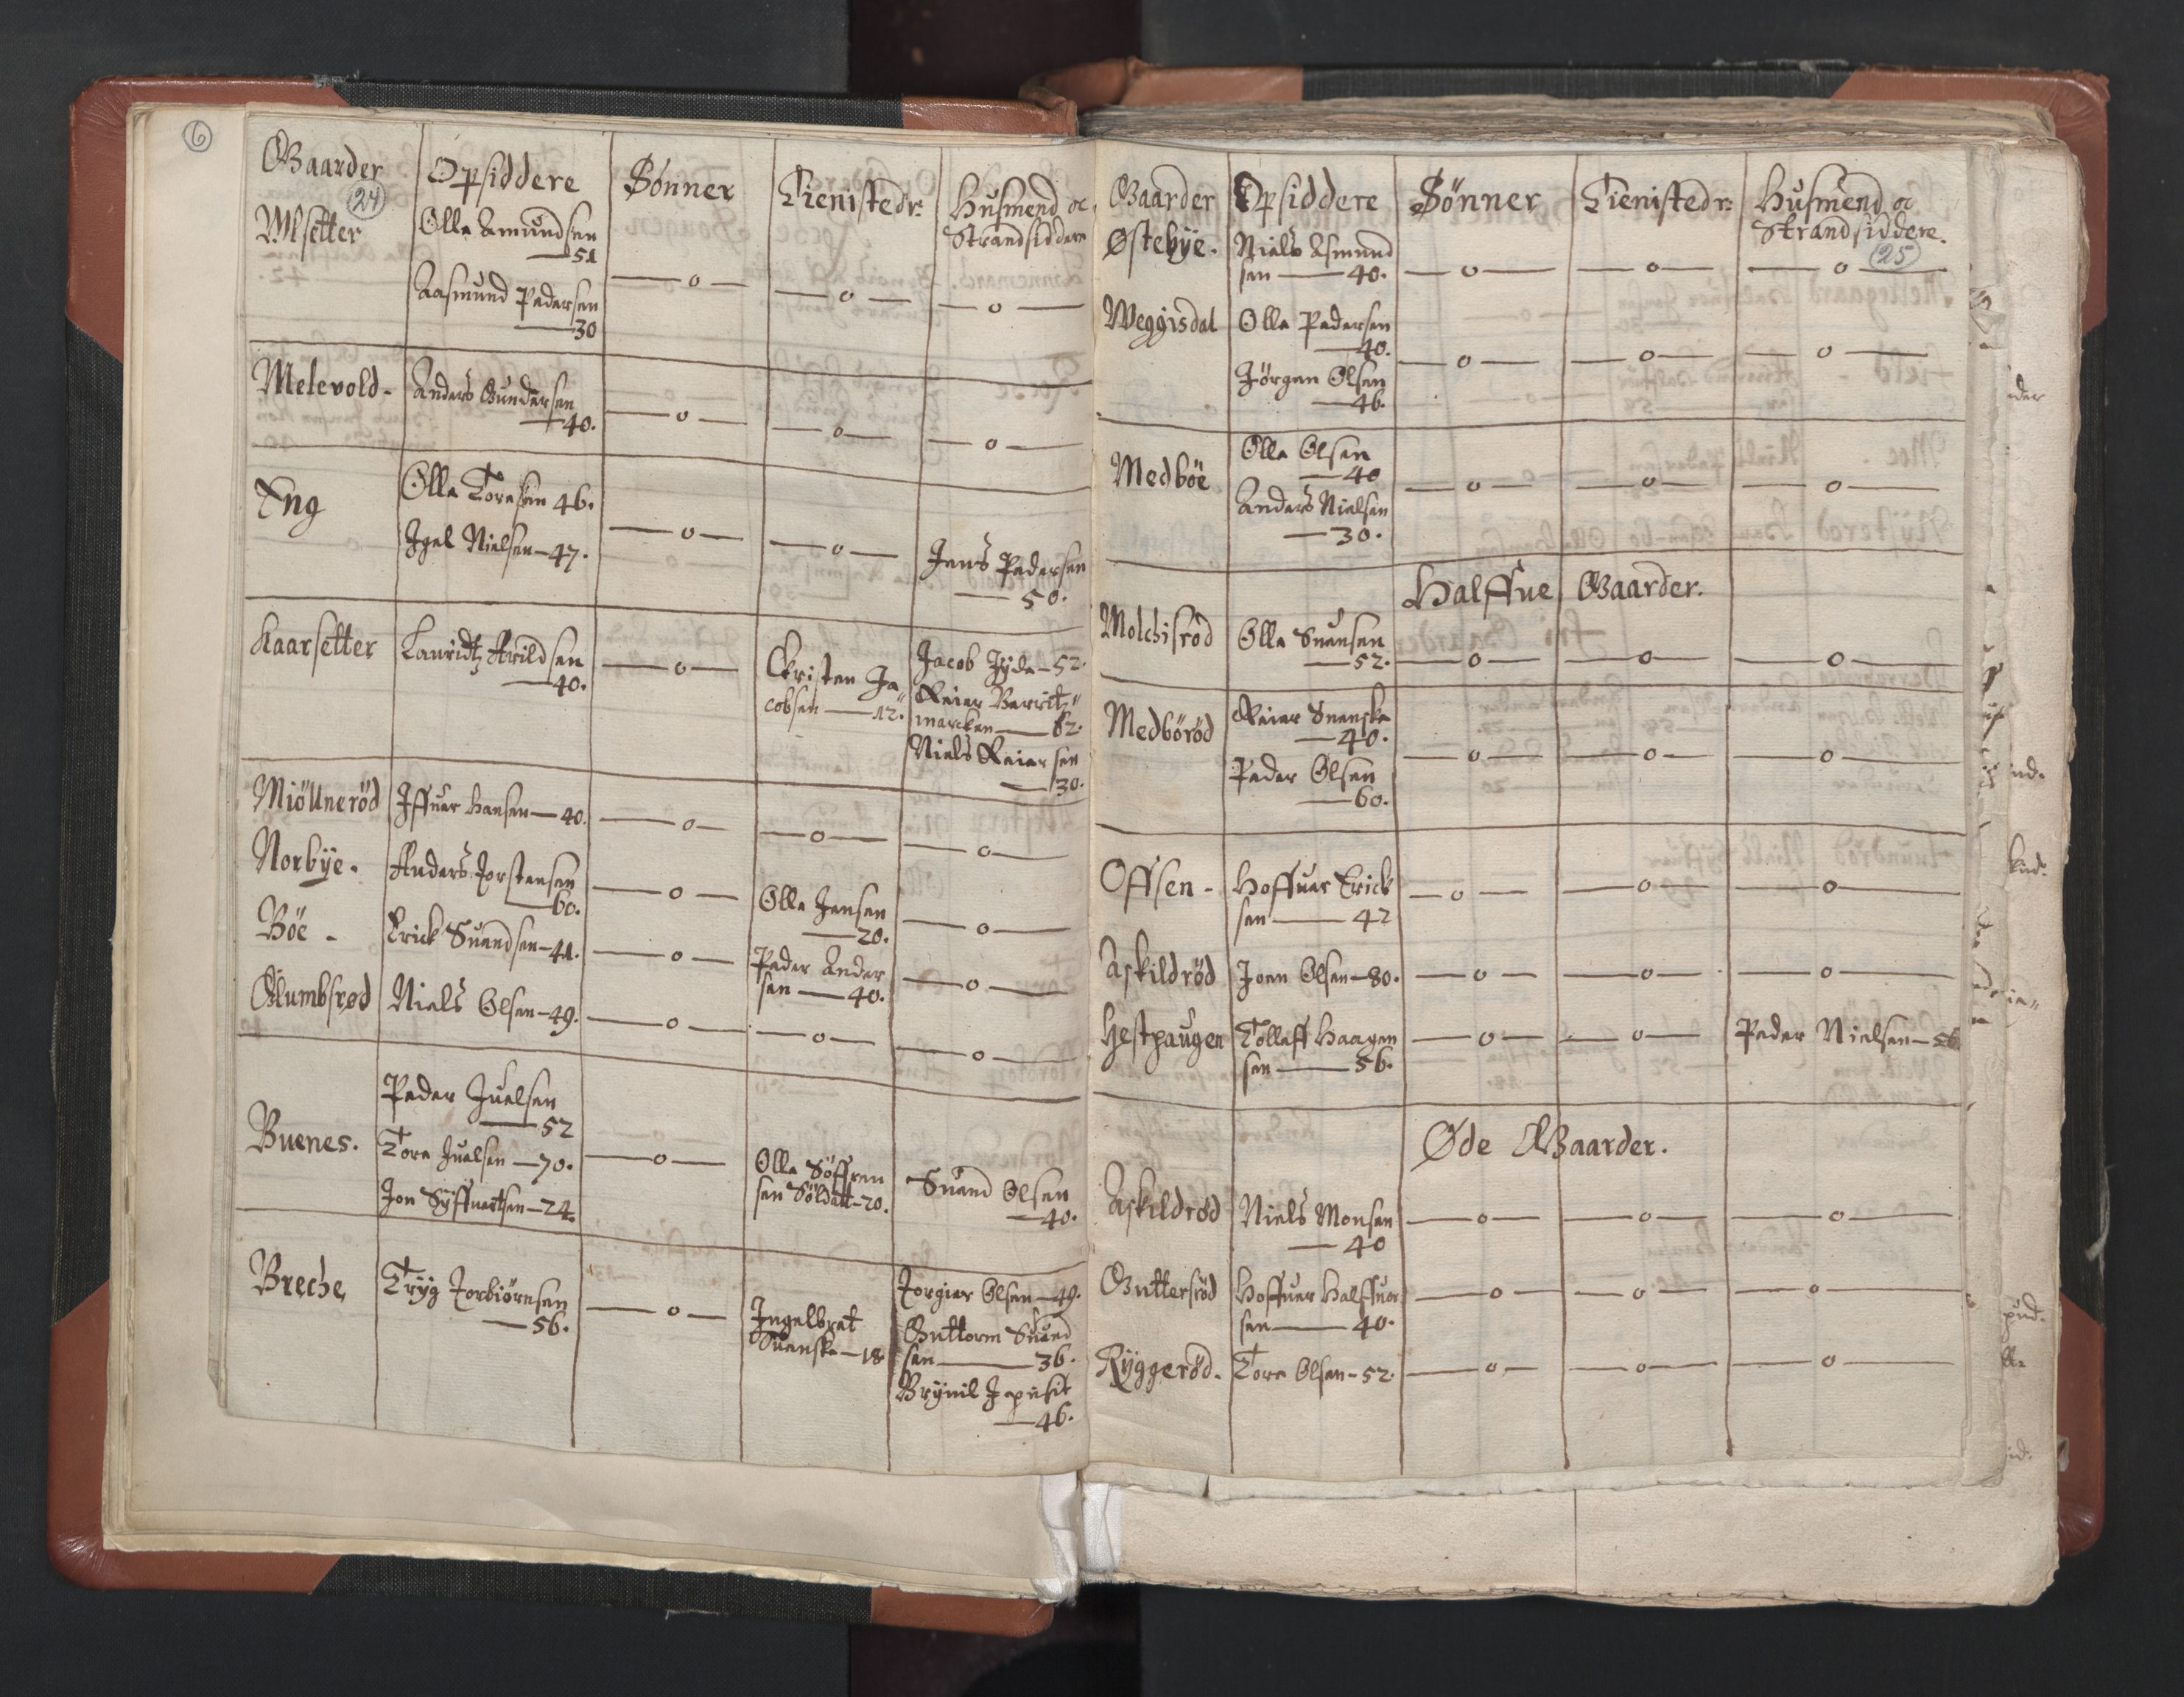 6
Gaarder Opsiddere Sønner Tienistedr: Husmend oc
Strandsiddere
24
Ulsetter Olle Amundsen
— 51
Aasmund Pedersen — o — — o — — o —
— 30
Melevold - Anders Gundersen
— 40. — o — — o — — o —
Eng Olle Toresen 46.
Igel Nielsen — 47. — o — — o — Jens Pedersen
— 50.
Kaarsetter Lauridtz Arildsen
— 40. — o — Christen Ja
cobsen — 12. Jacob Jyde — 52.
Reier Berritz
marcken — 62.
Niels Reiersen
— 30.
Miöllneröd Iffuer Hansen — 40. — o — — o — — o —
Norbÿe. Anders Torstensen
— 60. — o — Olle Jensen
— 20. — o —
Böe - Erick Suendsen — 41. — o — Peder Ander
sen — 40. — o —
Glumbsrød Niels Olsen — 49. — o — — o — — o —
Buenes. Peder Juelsen
— 52
Tore Juelsen — 70. — o — Olle Söffren
sen Söldatt — 20. Suend Olsen
— 40.
Jon Syffuertsen — 24.
Breche Trÿg Torbiörnsen
— 56. — o — Ingelbret
Suenske — 18 Torgier Olsen — 49.
Guttorm Suend
sen — 36.
Brÿnil
— 46.
Gaarder Opsiddere Sønner Tienistedr: Husmend oc
Strandsiddere.
25
Østebÿe. Niels Asmund
sen — 40. — o — — o — — o —
Weggisdal Olle Pedersen
— 40.
— o — — o — — o —
Jörgen Olsen
— 46.
Medböe Olle Olsen
— 40
— o — — o — — o —
Anders Nielsen
— 30.
Halffue Gaarder.
Molchisröd Olle Suensen
— 52. — o — — o — — o —
Medböröd Reier Suenske
— 40.
— o — — o — — o —
Peder Olsen
— 60.
Offsen - Hoffuer Erick
sen — 42 — o — — o — — o —
Askildröd Joen Olsen — 80. — o — — o — — o —
Hesthaugen Tolleff Haagen
sen — 56. — o — — o — Peder Nielsen — 56
Øde Gaarder.
Askildröd Niels Monsen
— 40 — o — — o — — o —
Guttersröd Hoffuer Halffuor
sen — 40. — o — — o — — o —
Rÿggeröd. Tore Olsen - 52. — o — — o — — o —